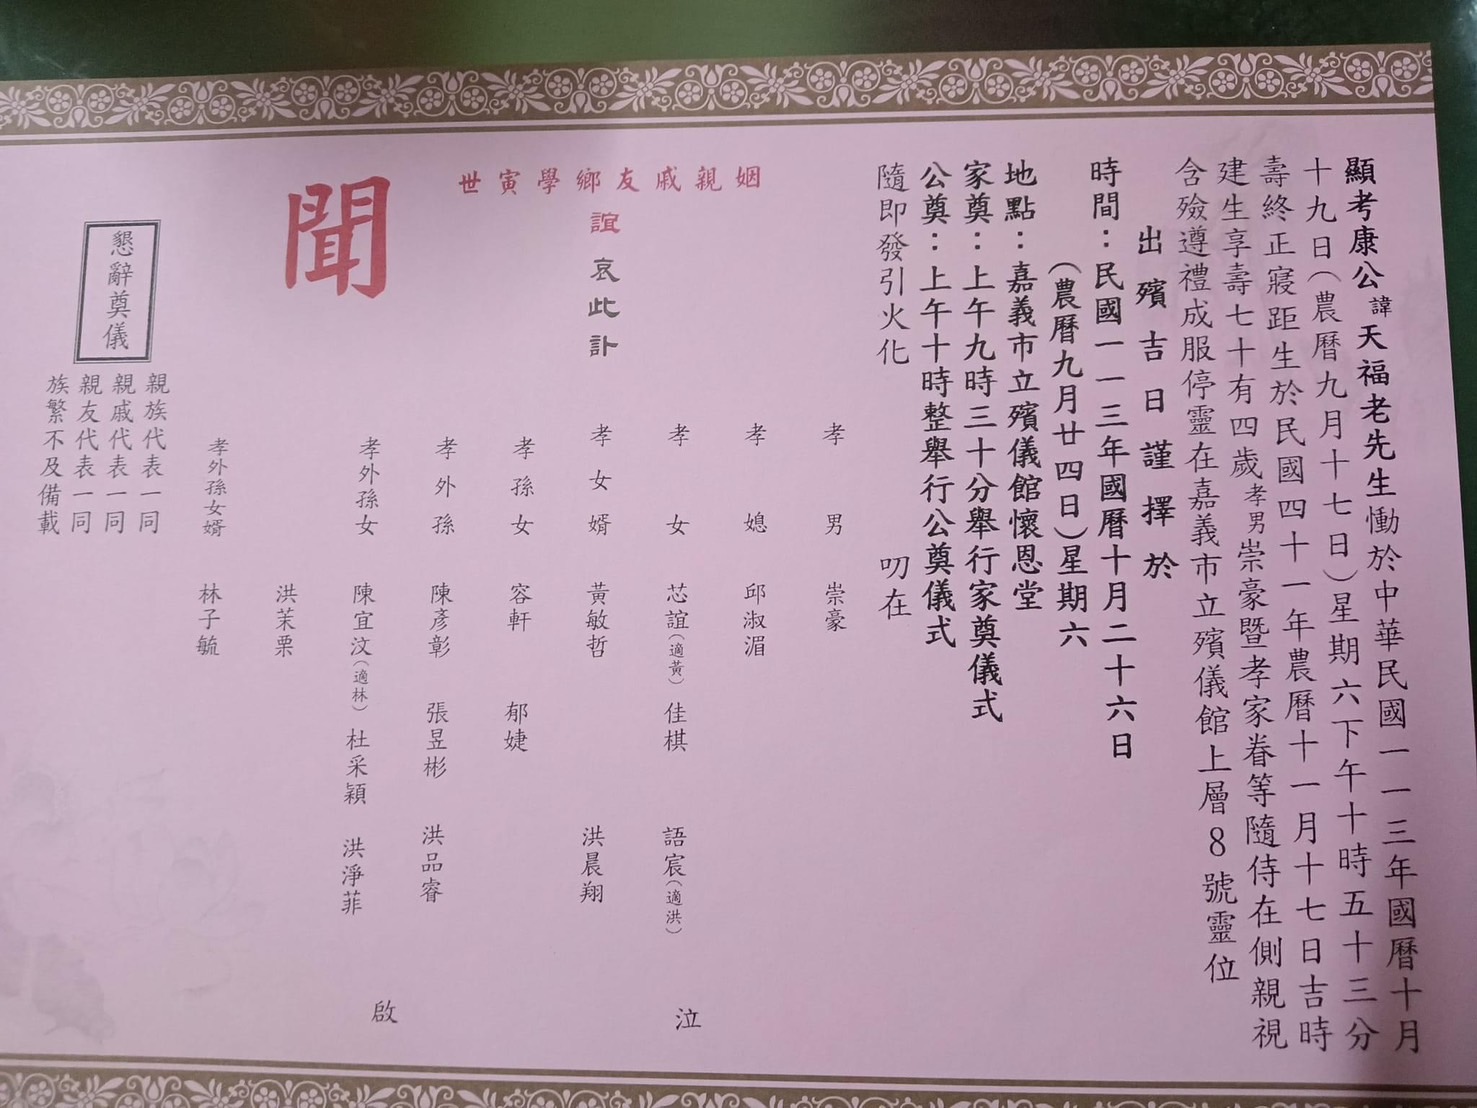 顯考康公諱天福老先生慟於中華民國一一三年國曆十月
十九日(農曆九月十七日)星期六下午十時五十三分
壽終正寢距生於民國四十一年農曆十一月十七日吉時
建生享壽七十有四歲孝男崇豪暨孝家眷等隨侍在側親視
含殮遵禮成服停靈在嘉義市立殯儀館上層8號靈位
出殯吉日謹擇於
時間:民國一一三年國曆十月二十六日
(農曆九月廿四日)星期六
地點:嘉義市立殯儀館懷恩堂
家奠:上午九時三十分舉行家奠儀式
公奠:上午十時整舉行公奠儀式
隨即發引火化 叨在
姻親戚友鄉學寅世
誼哀此訃
聞
孝男 崇豪
孝媳 邱淑湄
孝女 芯誼(適黃) 佳棋 語宸(適洪) 泣
孝女婿 黃敏哲 洪晨翔
孝孫女 容軒 郁婕
孝外孫 陳彥彰 張昱彬 洪品睿
孝外孫女 陳宜汶(適林) 杜采穎 洪淨菲 啟
洪茉栗
孝外孫女婿 林子毓
懇辭奠儀
親族代表一同
親戚代表一同
親友代表一同
族繁不及備載